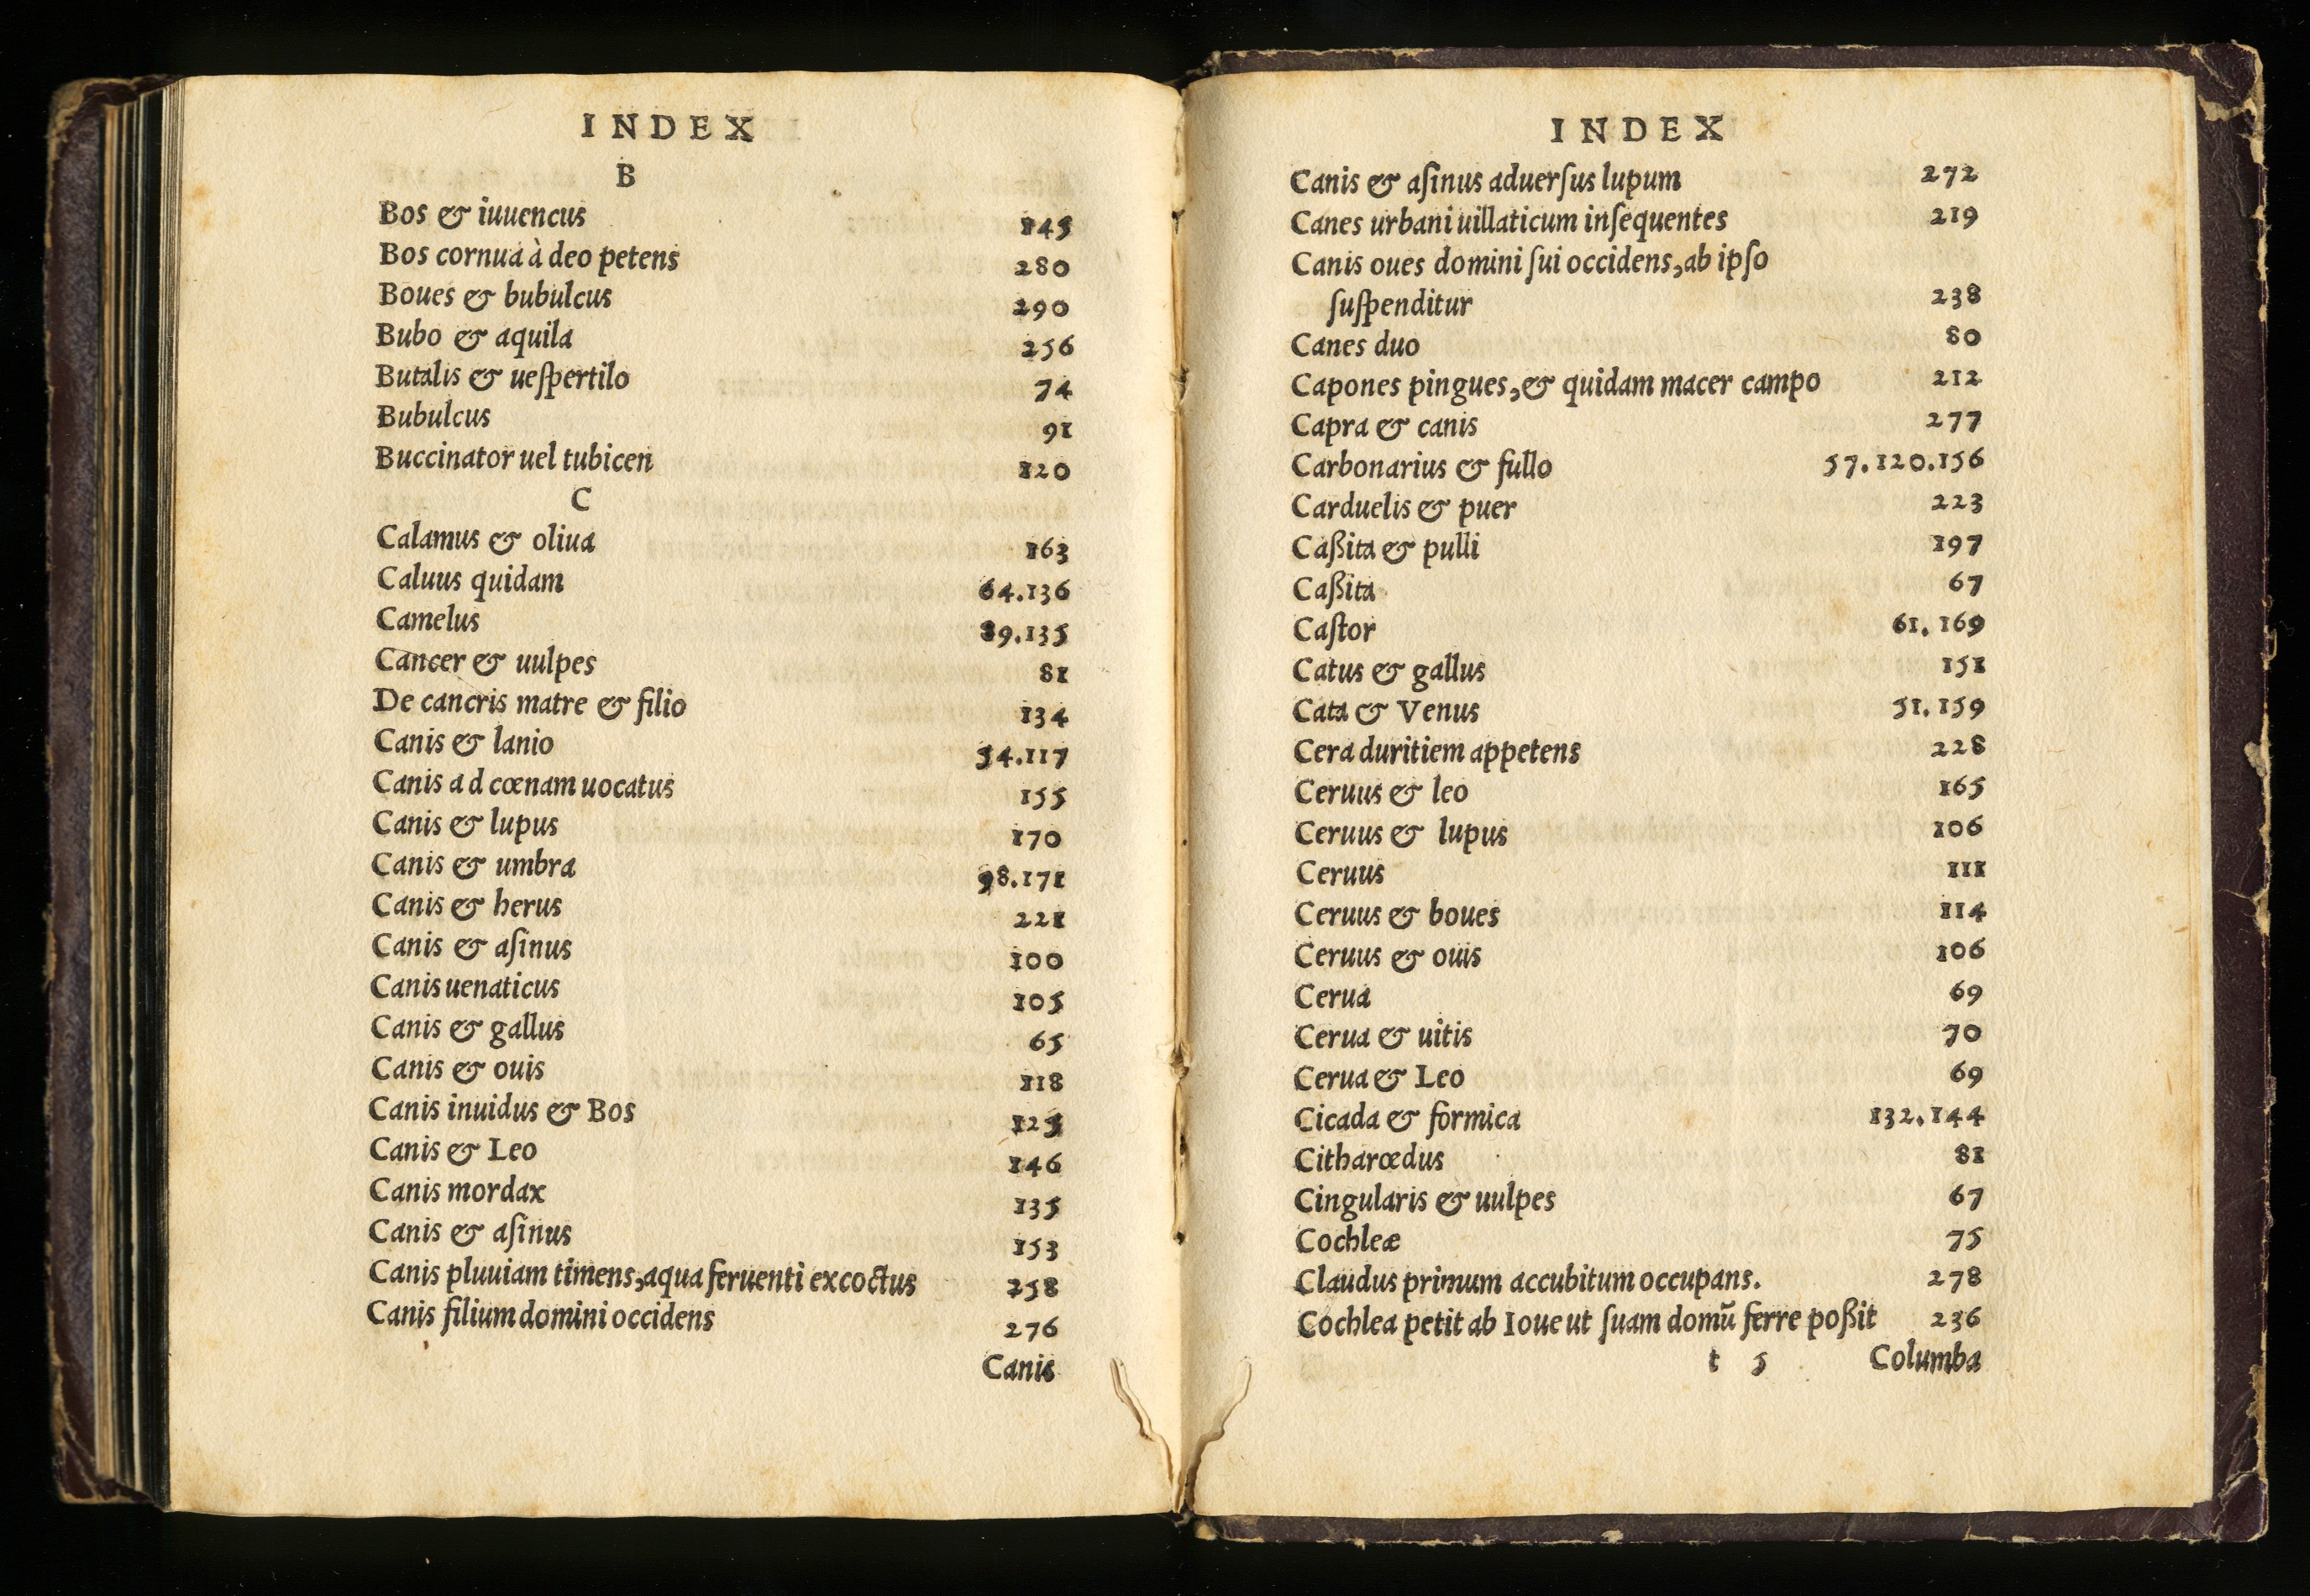 INDEX
B
Bos & iuuencus 145
Bos cornua à deo petens 280
Boues & bubulcus 290
Bubo & aquila 256
Butalis & ueſpertilo 74
Bubulcus 91
Buccinator uel tubicen 120
C
Calamus & oliua 163
Caluus quidam 64.136
Camelus 89.135
Cancer & uulpes 81
De cancris matre & filio 134
Canis & lanio 54.117
Canis ad cœnam uocatus 155
Canis & lupus 170
Canis & umbra 98.171
Canis & herus 221
Canis & aſinus 100
Canis uenaticus 105
Canis & gallus 65
Canis & ouis 118
Canis inuidus & Bos 125
Canis & Leo 146
Canis mordax 135
Canis & aſinus 153
Canis pluuiam timens, aqua feruenti excoctus 258
Canis filium domini occidens 276
Canis
INDEX
Canis & aſinus aduerſus lupum 272
Canes urbani uillaticum inſequentes 219
Canis oues domini ſui occidens, ab ipſo
ſuſpenditur 238
Canes duo 80
Capones pingues, & quidam macer campo 212
Capra & canis 277
Carbonarius & fullo 57.120.156
Carduelis & puer 223
Caßita & pulli 197
Caßita 67
Caſtor 61.169
Catus & gallus 151
Cata & Venus 51.159
Cera duritiem appetens 228
Ceruus & leo 165
Ceruus & lupus 106
Ceruus 111
Ceruus & boues 114
Ceruus & ouis 106
Cerua 69
Cerua & uitis 70
Cerua & Leo 69
Cicada & formica 132.144
Citharœdus 81
Cingularis & uulpes 67
Cochleæ 75
Claudus primum accubitum occupans. 278
Cochlea petit ab Ioue ut ſuam domū ferre poßit 236
t 5 Columba